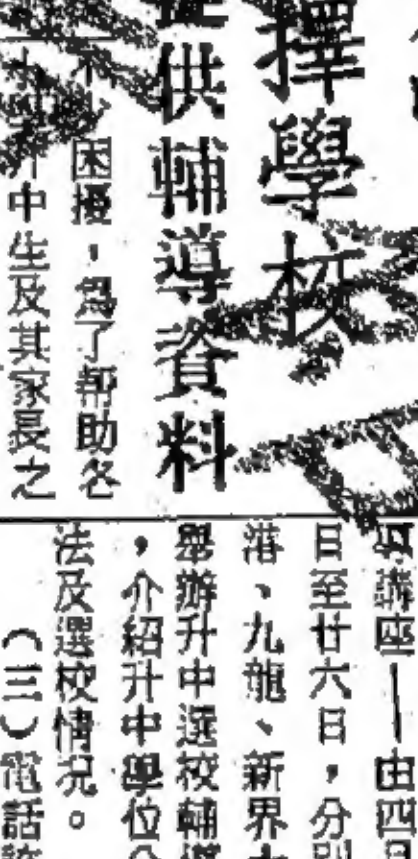 擇學校
提供輔導資料
困擾，爲了幫助各
中生及其家長之
與講座——由四月
日至廿六日，分別
港、九龍、新界
舉辦升中選校輔導
，介紹升中學位分
法及選校情况。
（三）電話